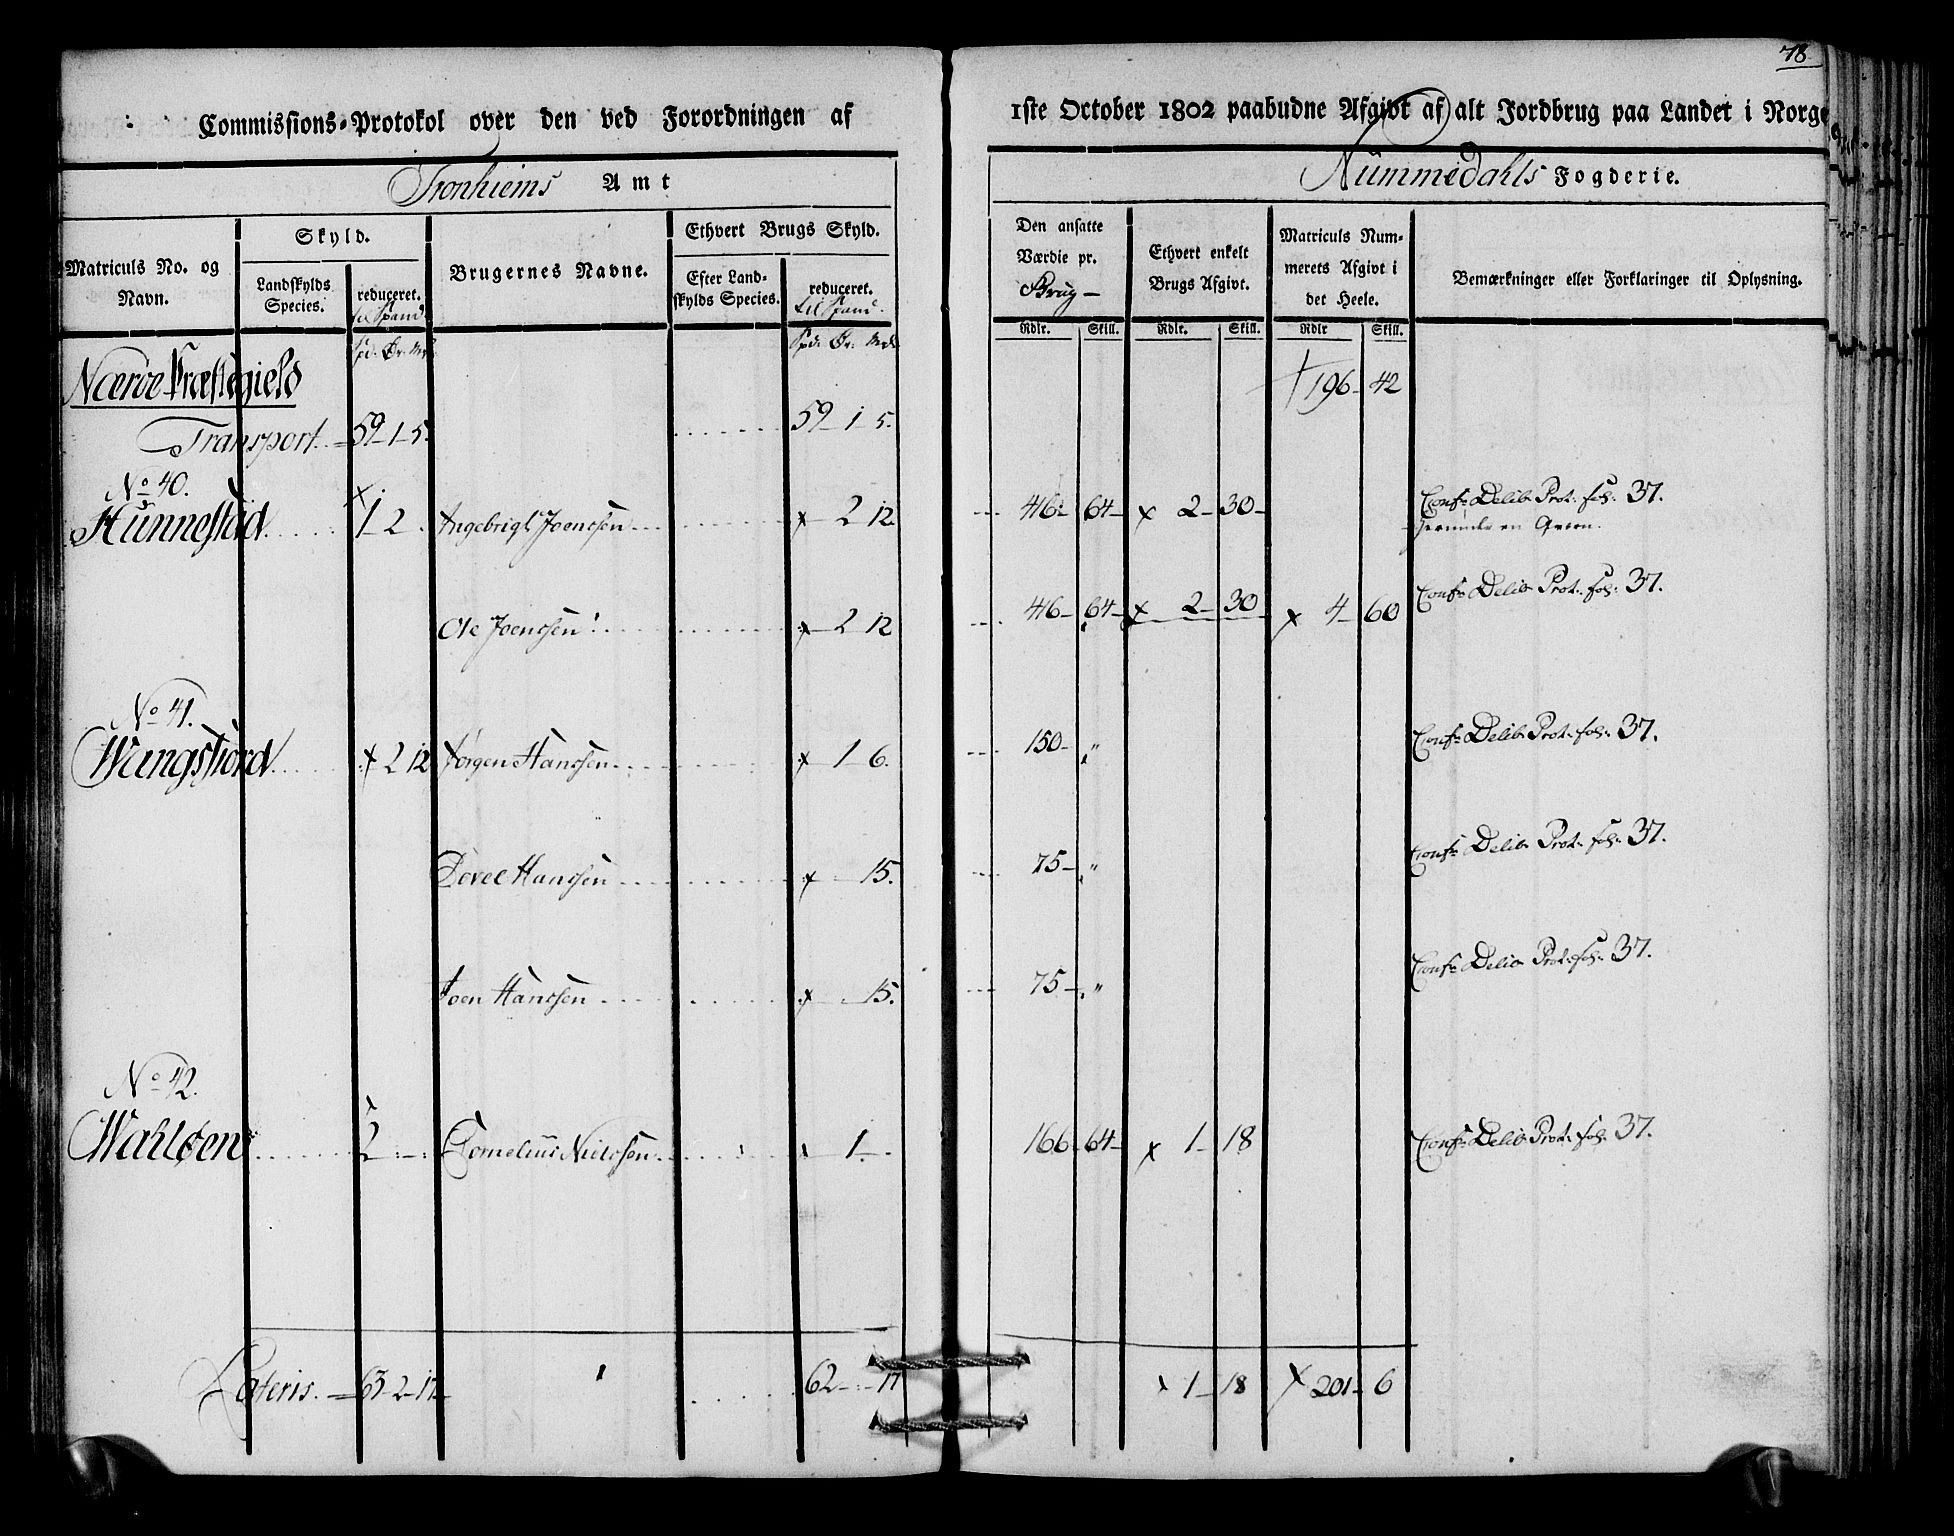 78.
Commissions-Protokol over den ved Forordningen af 1ste October 1802 paabudne Afgivt af alt Jordbrug paa Landet i Norge
Tronhiems Amt
Nummedahls Fogderie.
Matriculs No. og Navn.
Skyld.
Landskylds Species.
reduceret. til Spand.
Brugernes Navne.
Ethvert Brugs Skyld.
Efter Landskylds Species.
reduceret. til Spand.
Den ansatte Værdie pr. Brug
Ethvert enkelt Brugs Afgivt.
Matriculs Nummerets Afgivt i det Heele.
Bemærkninger eller Forklaringer til Oplysning.
Spd: Ør: Mrk: Spd: Ør: Mrk: Rdlr. Skill. Rdlr. Skill. Rdlr Skill.
Nærøe Præstegield
196 42
Transport 59 1 5. 59 1 5.
No 40.
Hünnestad 1 2 Ingebrigt Joenssen x 2 12 46 64 x 2 30 Conf: Delib: Prot: fol: 37.
en
Ole Joenssen x 2 12 46 64 x 2 30 x 4 60 Conf: Delib: Prot: fol: 37.
No 41.
Wangsfiord x 2 12 Jørgen Hanssen x 1 6. 150 " Conf: Delib: Prot: fol: 37.
Hanssen x 15. 75 " Conf: Delib: Prot: fol: 37.
Joen Hanssen x 15. 75 " Conf: Delib: Prot: fol: 37.
No 42.
Wahløen 2 Cornelius Nielssen x 1 166 64 x 1 18 Conf: Delib: Prot: fol: 37.
Lateris. 63 2 17 62 17 x 1 18 x 201 6